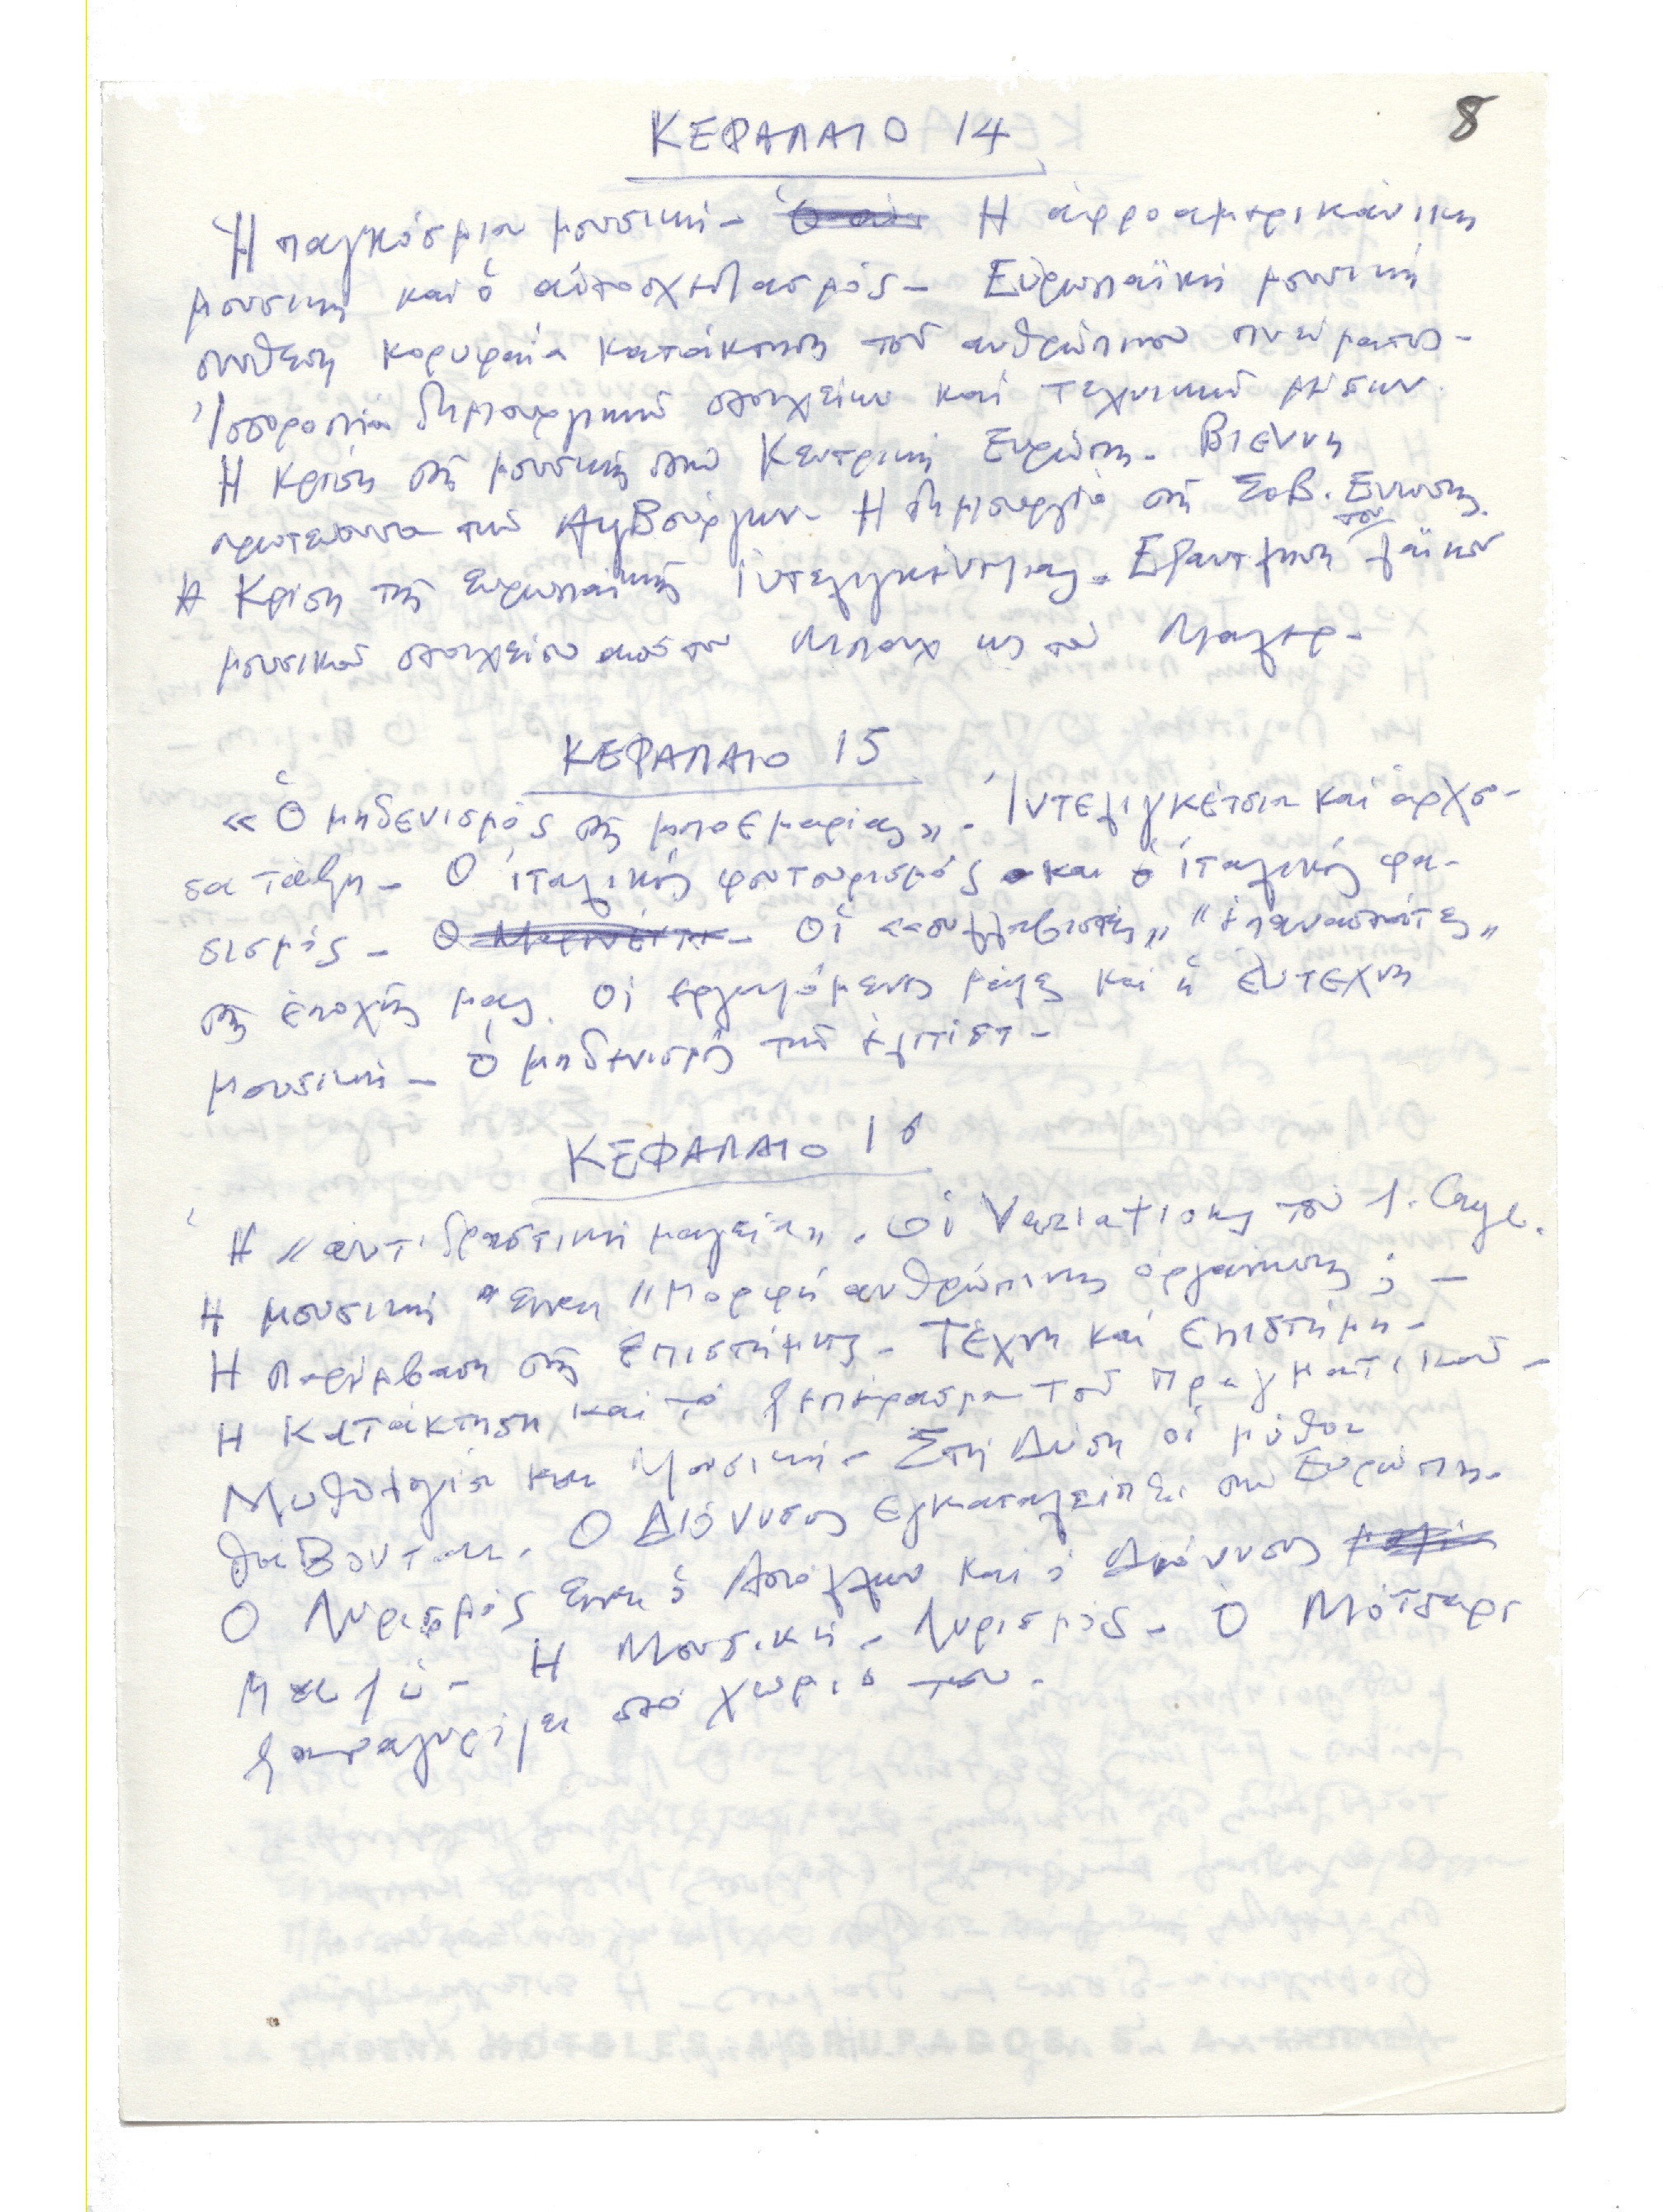 8
ΚΕΦΑΛΑΙΟ 14
Ἡ παγκόσμια μουσική – Η ἀφροαμερικάνικη
μουσική καί ὁ αὐτοσχεδιασμός – Εὐρωπαϊκή μουσική
σύνθεση κορυφαία κατάκτηση τοῦ ανθρώπινου πνεύματος –
Ἰσορροπία δημιουργικῶν στοιχείων καί τεχνικῶν μέσων.
Η κρίση τῆς μουσικῆς στήν Κεντρική Ευρώπη – Βιέννη
πρωτεύουσα τῶν Αψβούργων – Η δημιουργία τῆς Σοβ. Ενωσης.
Η Κρίση τῆς Ευρωπαϊκῆς ἰντελιγκέντσιας – Εξαντληση τοῦ λαϊκοῦ
μουσικοῦ στοιχείου από τον Μπαχ ως τόν Μαλερ –
ΚΕΦΑΛΑΙΟ 15
« Ὁ μηδενισμός τῆς μποεμαρίας » – Ἰντελιγκέτσια καί ἀρχο-
σα τάξη – Ο ἰταλικός φουτουρισμός και ὁ ἰταλικός φα-
σισμός – Οἱ «συλλαβιστές» "ἐπαναστάτες"
τῆς ἐποχῆς μας. Οἱ εργαζόμενες μάζες και ἡ ἔντεχνη
μουσική – Ὁ μηδενισμός τῶν ἐλιτίστ –
ΚΕΦΑΛΑΙΟ 16
Ἡ «αντιδραστική μαγεία» . Οἱ Variations τοῦ J. Cage.
Η μουσική εἶναι "μορφή ανθρώπινης ὀργάνωσης ; –
Η παρέμβαση τῆς ἐπιστήμης – Τέχνη καί ἐπιστήμη –
Η κατάκτηση και τό ξεπέρασμα τοῦ πραγματικοῦ –
Μυθολογία και Μουσική – Στή Δύση οἱ μύθοι
θάβονται. Ο Διόνυσος εγκαταλείπει τήν Ευρώπη –
Ο Λυρισμός εἶναι ὁ Απόλλων και ὁ Διόνυσος
μαζί – Η Μουσική – Λυρισμός – Ὁ Μότσαρτ
ξαναγυρίζει στό χωριό του .